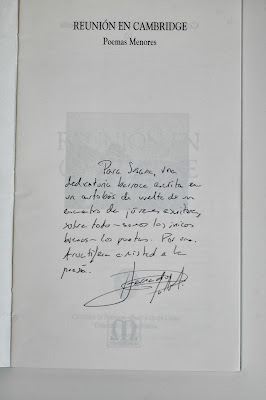 REUNIÓN EN CAMBRIDGE
Poemas Menores
Para Susana, una
dedicatoria barroca escrita en
un autobús de vuelta de un
encuentro de jóvenes escritores,
sobre todo -somos los únicos
buenos- los poetas. Por una
fructífera amistad a la
poesía.